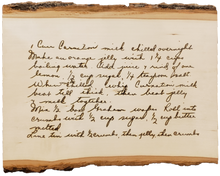 1 Can Carnation milk chilled overnight
Make an orange jelly with 1 3/4 cups
boiling water Add juice & rind of one
lemon, 1/2 cup sugar, 1/4 teaspoon salt
When chilled whip Carnation milk
beat till thick, then beat jelly
& milk together.
Mix Graham wafers Roll into
crumbs with 1/2 cup sugar, 1/2 cup butter
melted
Line pan with crumbs, then jelly then crumbs